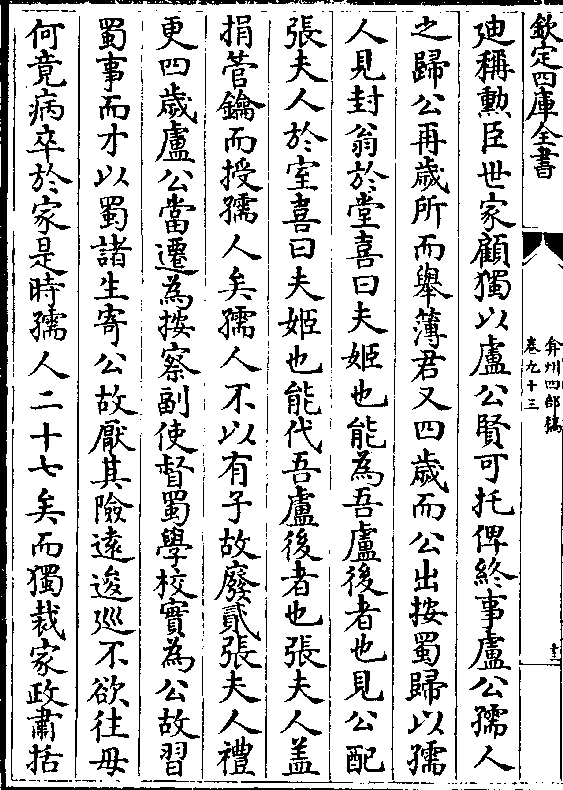 欽定四庫全書
弇州四部稿
卷九十三
十三
廸稱勲臣世家顧獨以盧公賢可托俾終事盧公孺人
之歸公再歲所而舉簿君又四歲而公出按蜀歸以孺
人見封翁於堂喜曰夫姬也能為吾盧後者也見公配
張夫人於室喜曰夫姬也能代吾盧後者也張夫人盖
捐菅鑰而授孺人矣孺人不以有子故廢貳張夫人禮
更四歲盧公當遷為按察副使督蜀學校實為公故習
蜀事而才以蜀諸生寄公故厭其險逺逡巡不欲往毋
何竟病卒於家是時孺人二十七矣而獨裁家政肅括